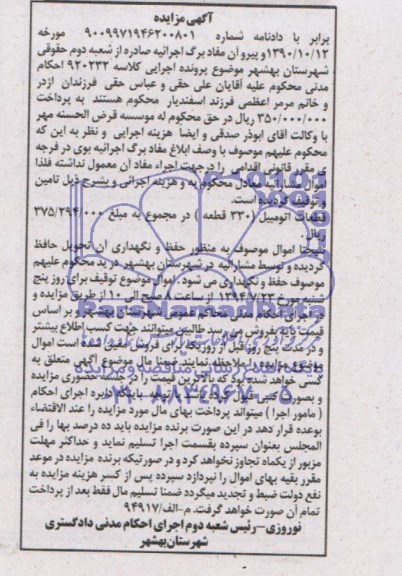 آگهی مزایده
برابر با دادنامه شماره ۹۰۰۹۹۷۱۹۴۶۲۰۰۸۰۱ مورخه
۱۳۹۰/۱۰/۱۲ و پیرو آن مفاد برگ اجرائیه صادره از شعبه دوم حقوقی
شهرستان بهشهر موضوع پرونده اجرایی کلاسه ۹۲۰۲۳۲ احکام
مدنی محکوم علیه آقایان علی حقی و عباس حقی فرزندان اژدر
و خانم مرمر اعظمی فرزند اسفندیار محکوم هستند به پرداخت
۳۵۰/۰۰۰/۰۰۰ ریال در حق محکوم له موسسه قرض الحسنه مهر
با وکالت آقای ابوذر صدقی و ایضا هزینه اجرایی و نظر به این که
محکوم علیهم موصوف با وصف ابلاغ مفاد برگ اجرائیه بوی در فرجه
ی مقرر قانونی اقدامی را در جهت اجراء مفاد آن معمول نداشته فلذا
اموال مشارالیه معادل محکوم به و هزینه اجرائی و بشرح ذیل تامین
و توقیف گردیده است.
قطعات اتومبیل (۳۳۰ قطعه) در مجموع به مبلغ ۳۷۵/۲۹۴/۰۰۰
ریال.
نتیجتا اموال موصوف به منظور حفظ و نگهداری آن تحویل حافظ
گردیده و توسط مشارالیه در شهرستان بهشهر در ید محکوم علیهم
موصوف حفظ و نگهداری می شود. اموال موضوع توقیف برای روز پنج
شنبه مورخ ۱۳۹۴/۷/۲۳ از ساعت ۸ صبح الی ۱۰ از طریق مزایده و
در اجرای احکام مدنی محاکم عمومی شهرستان بهشهر و بر اساس
قیمت پایه بفروش می رسد طالبین میتوانند جهت کسب اطلاع بیشتر
و در مدت پنج روز قبل از روزیکه برای فروش معین شده است اموال
موضوع مزایده را ملاحظه نمایند ضمنا مال موضوع آگهی متعلق به
کسی خواهد شد که بالاترین قیمت را در جلسه حضوری مزایده
و بصورت کتبی
( مامور اجرا ) میتواند پرداخت بهای مال مورد مزایده را عند الاقتضاء
بوعده قرار دهد در این صورت برنده مزایده باید ده درصد بها را فی
المجلس بعنوان سپرده بقسمت اجرا تسلیم نماید و حداکثر مهلت
مزبور از یکماه تجاوز نخواهد کرد و در صورتیکه برنده مزایده در موعد
مقرر بقیه بهای اموال را نپردازد سپرده پس از کسر هزینه مزایده به
نفع دولت ضبط و تجدید میگردد ضمنا تسلیم مال فقط بعد از پرداخت
تمام آن صورت خواهد گرفت. م-الف/۹۴۹۱۷
نوروزی-رئیس شعبه دوم اجرای احکام مدنی دادگستری
شهرستان بهشهر